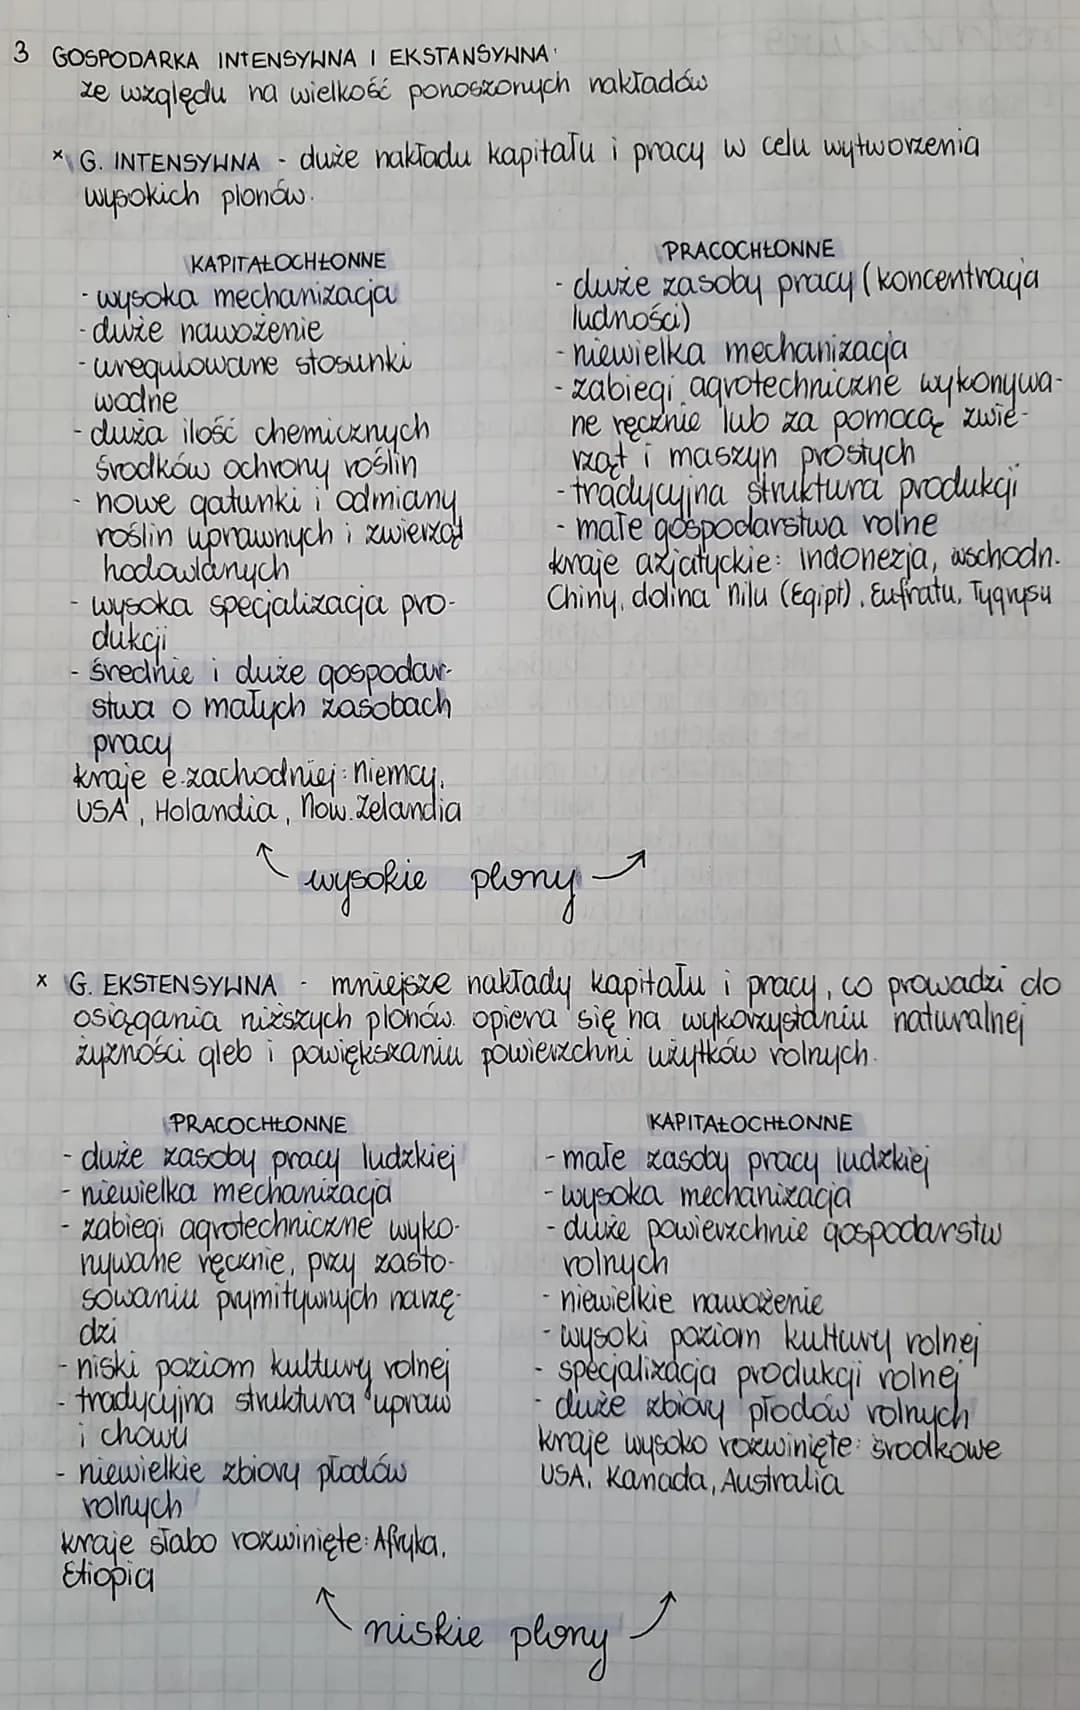 3 GOSPODARKA INTENSYWNA I EKSTANSYWNA
ze względu na wielkość ponoszonych nakładów
x G. INTENSYWNA - duże nakładu kapitału i pracy w celu wytworzenia
wysokich plonów.
KAPITAŁOCHŁONNE
- wysoka mechanizacja
- duże nawożenie
- uregulowane stosunki
wodne
- duża ilość chemicznych
środków ochrony roślin
- nowe gatunki i odmiany
roślin uprawnych i zwierząt
hodowlanych
- wysoka specjalizacja pro-
dukcji
- średnie i duże gospodar-
stwa o małych zasobach
pracy
kraje e. zachodniej: Niemcy,
USA, Holandia, Now. Zelandia
PRACOCHŁONNE
- duże zasoby pracy (koncentracja
ludności)
- niewielka mechanizacja
- zabiegi agrotechniczne wykonywa-
ne ręcznie lub za pomocą zwie-
rząt i maszyn prostych
- tradycyjna struktura produkcji
- małe gospodarstwa rolne
kraje azjatyckie: indonezja, wschodn.
Chiny, dolina Nilu (Egipt), Eufratu, Tygrysu
wysokie plony
x G. EKSTENSYWNA - mniejsze nakłady kapitału i pracy, co prowadzi do
osiągania niższych plonów. opiera się na wykorzystaniu naturalnej
żyzności gleb i powiększaniu powierzchni użytków rolnych.
PRACOCHŁONNE
- duże zasoby pracy ludzkiej
- niewielka mechanizacja
- zabiegi agrotechniczne wyko-
nywane ręcznie, przy zasto-
sowaniu prymitywnych narzę-
dzi
- niski poziom kultury rolnej
- tradycyjna struktura upraw
i chowu
- niewielkie zbiory płodów
rolnych
kraje słabo rozwinięte: Afryka,
Etiopia
KAPITAŁOCHŁONNE
- małe zasoby pracy ludzkiej
- wysoka mechanizacja
- duże powierzchnie gospodarstw
rolnych
- niewielkie nawożenie
- wysoki poziom kultury rolnej
- specjalizacja produkcji rolnej
- duże zbiory płodów rolnych
kraje wysoko rozwinięte: środkowe
USA, Kanada, Australia
niskie plony